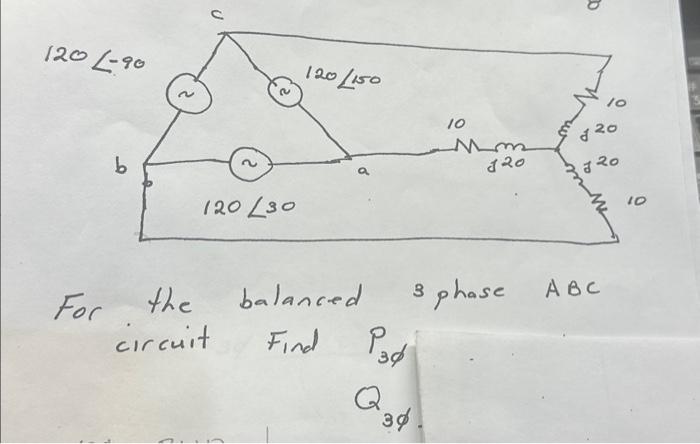 c
120 ∠-90
120 ∠150
10
j20
10
j20
j20
b
a
10
120 ∠30
For the balanced 3 phase ABC
circuit Find P3φ
Q3φ.